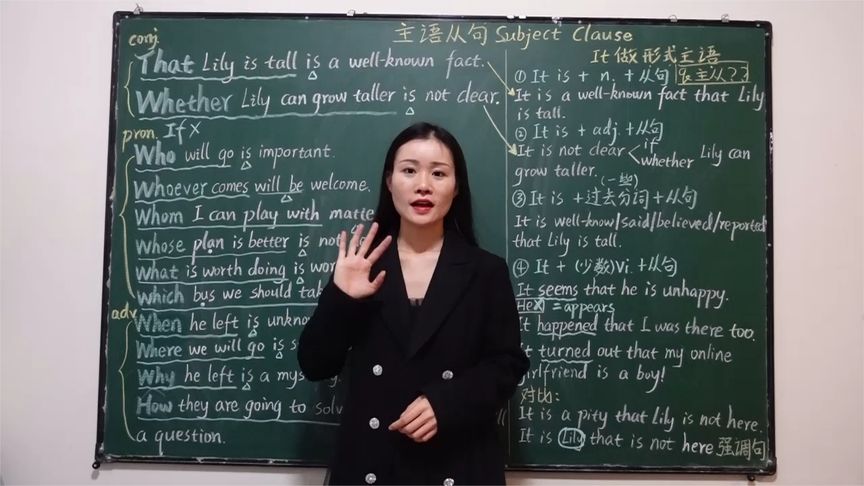 主语从句 Subject Clause
conj.
That Lily is tall is a well-known fact.
Whether Lily can grow taller is not clear.
pron. If ×
Who will go is important.
Whoever comes will be welcome.
Whom I can play with matte
Whose plan is better is not
What is worth doing is wor
Which bus we should tak
adv.
When he left is unkno
Where we will go is s
Why he left is a mys
How they are going to solv
a question.
It 做形式主语
① It is + n. + 从句
It is a well-known fact that Lily
is tall.
② It is + adj. + 从句
It is not clear if
whether Lily can
grow taller.
(一些)
③ It is + 过去分词 + 从句
It is well-know/said/believed/reported
that Lily is tall.
④ It + (少数)vi. + 从句
It seems that he is unhappy.
He × = appears
It happened that I was there too.
It turned out that my online
girlfriend is a boy!
对比:
It is a pity that Lily is not here.
It is Lily that is not here 强调句